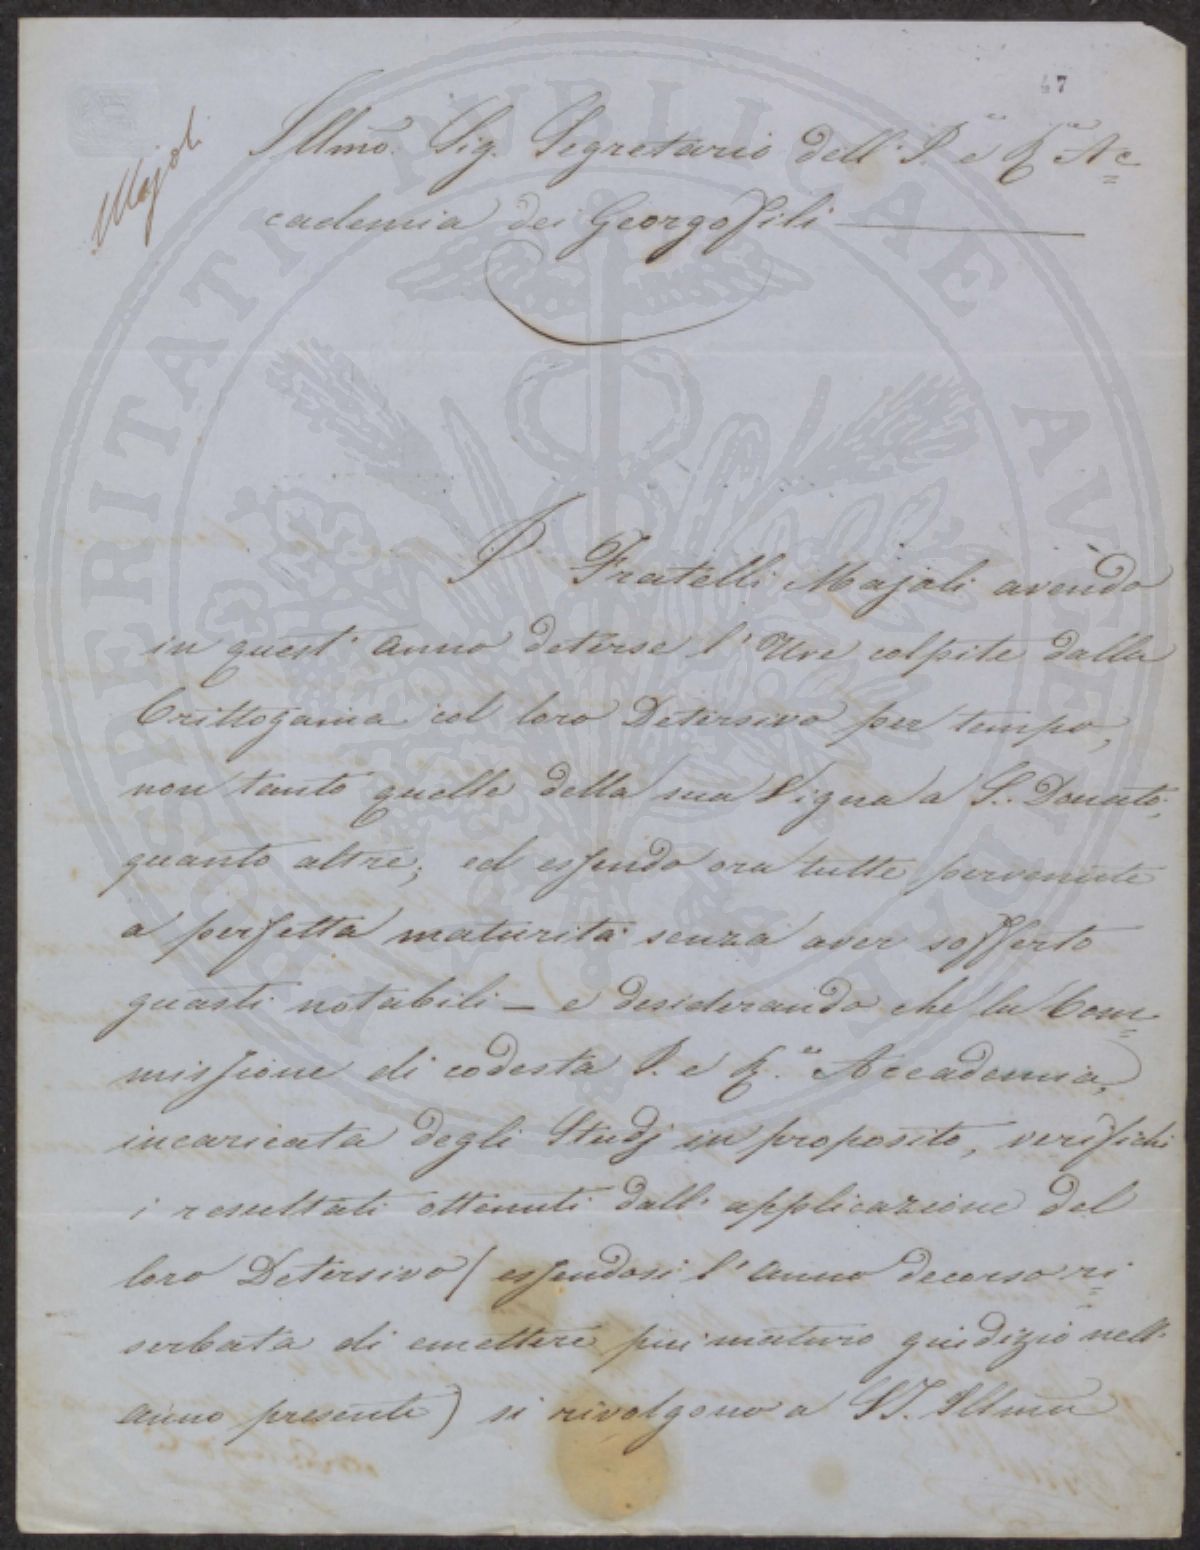 47
Majoli
Illmo. Sig. Segretario dell' I. e R. Ac=
cademia dei Georgofili
I Fratelli Majoli avendo
in quest' anno deterse l'Uve colpite dalla
Crittogama col loro Detersivo per tempo,
non tanto quelle della sua Vigna a S. Donato,
quanto altre; ed essendo ora tutte pervenute
a perfetta maturità senza aver sofferto
guasti notabili — e desiderando che la Com=
missione di codesta I. e R. Accademia,
incaricata degli Studj in proposito, verifichi
i resultati ottenuti dall' applicazione del
loro Detersivo (essendosi l'anno decorso ri=
serbata di emettere più maturo giudizio nell'
anno presente) si rivolgono a VS. Illma
PROSPERITATI PUBLICAE AUGENDAE